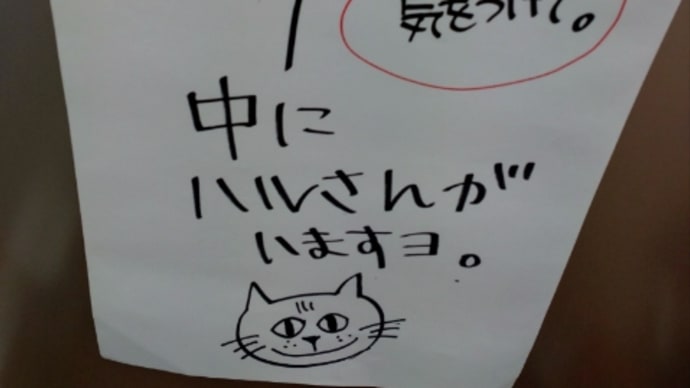 気をつけて。
中に
ハルさんが
いますヨ。